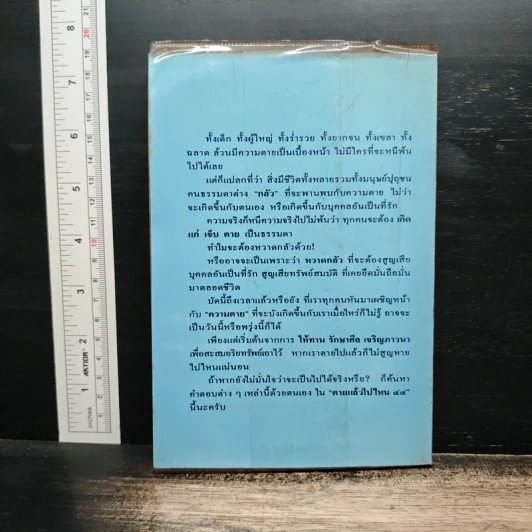 ทั้งเด็ก ทั้งผู้ใหญ่ ทั้งร่ำรวย ทั้งยากจน ทั้งเขลา ทั้ง
ฉลาด ล้วนมีความตายเป็นเบื้องหน้า ไม่มีใครที่จะหนีพ้น
ไปได้เลย
แต่ก็แปลกที่ว่า สิ่งมีชีวิตทั้งหลายรวมทั้งมนุษย์ปุถุชน
คนธรรมดาต่าง "กลัว" ที่จะพานพบกับความตาย ไม่ว่า
จะเกิดขึ้นกับตนเอง หรือเกิดขึ้นกับบุคคลอันเป็นที่รัก
ความจริงก็หนีความจริงไปไม่พ้นว่า ทุกคนจะต้อง เกิด
แก่ เจ็บ ตาย เป็นธรรมดา
ทำไมจะต้องหวาดกลัวด้วย!
หรืออาจจะเป็นเพราะว่า หวาดกลัว ที่จะต้องสูญเสีย
บุคคลอันเป็นที่รัก สูญเสียทรัพย์สมบัติ ที่เคยยึดมั่นถือมั่น
มาตลอดชีวิต
บัดนี้ถึงเวลาแล้วหรือยัง ที่เราทุกคนหันมาเผชิญหน้า
กับ "ความตาย" ที่จะบังเกิดขึ้นกับเราเมื่อไหร่ก็ไม่รู้ อาจจะ
เป็นวันนี้หรือพรุ่งนี้ก็ได้
เพียงแต่เริ่มต้นจากการ ให้ทาน รักษาศีล เจริญภาวนา
เพื่อสะสมอริยทรัพย์เอาไว้ หากเราตายไปแล้วก็ไม่สูญหาย
ไปไหนแน่นอน
ถ้าหากยังไม่มั่นใจว่าจะเป็นไปได้จริงหรือ? ก็ค้นหา
คำตอบต่าง ๆ เหล่านี้ด้วยตนเอง ใน "ตายแล้วไปไหน ๔๔"
นี้นะครับ
inches
1
2
3
4
5
6
7
8
1
2
3
4
5
6
7
8
9
10
11
12
13
14
15
16
17
18
19
20
21
AKTION